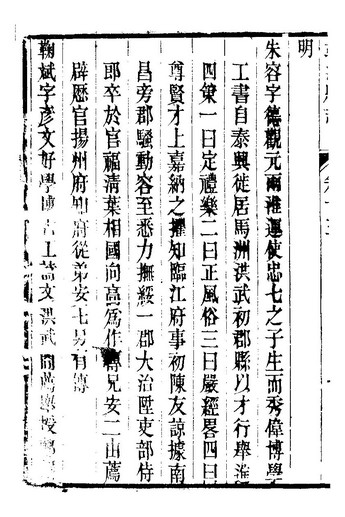 明
朱容字德觀元兩淮運使忠七之子生而秀偉博學
工書自泰興徙居馬洲洪武初郡縣以才行舉進
四策一曰定禮樂二曰正風俗三曰嚴經畧四曰
尊賢才上嘉納之擢知臨江府事初陳友諒據南
昌旁郡騷動容至悉力撫綏一郡大治陞吏部侍
郎卒於官福清葉相國向高為作傳兄安二由薦
辟歷官揚州府知府從弟安七另有傳
鞠斌字彥文好學博古工詩文洪武間薦舉授